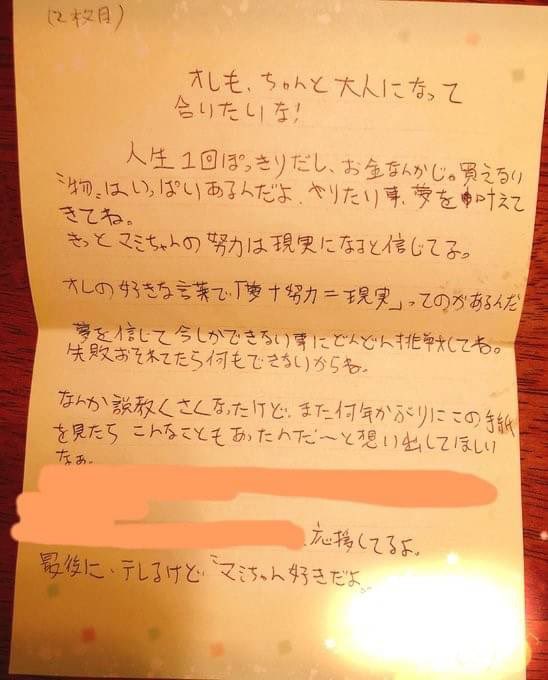 (2枚目)
オレも、ちゃんと大人になって
合りたいな!
人生1回ぽっきりだし、お金なんかじゃ買えない
"物"はいっぱいあるんだよ、やりたい事、夢を叶えて
きてね。
きっとマミちゃんの努力は現実になると信じてる。
オレの好きな言葉で「夢+努力=現実」ってのがあるんだ
夢を信じて今しかできない事にどんどん挑戦してね。
失敗おそれてたら何もできないからね。
なんか説教くさくなったけど、また何年かぶりにこの手紙
を見たら こんなこともあったんだ〜と想い出してほしい
なぁ。
、応援してるよ。
最後に、テレるけど"マミちゃん好きだよ